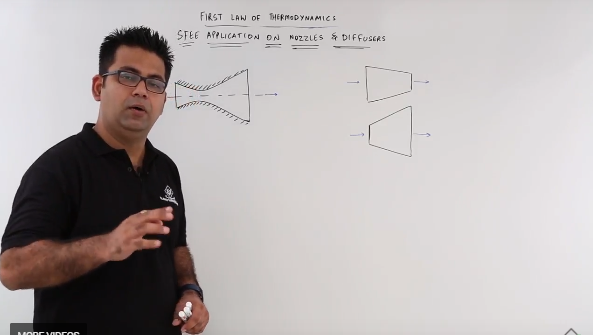 FIRST LAW OF THERMODYNAMICS
SFEE APPLICATION ON NOZZLES & DIFFUSERS
MORE VIDEOS